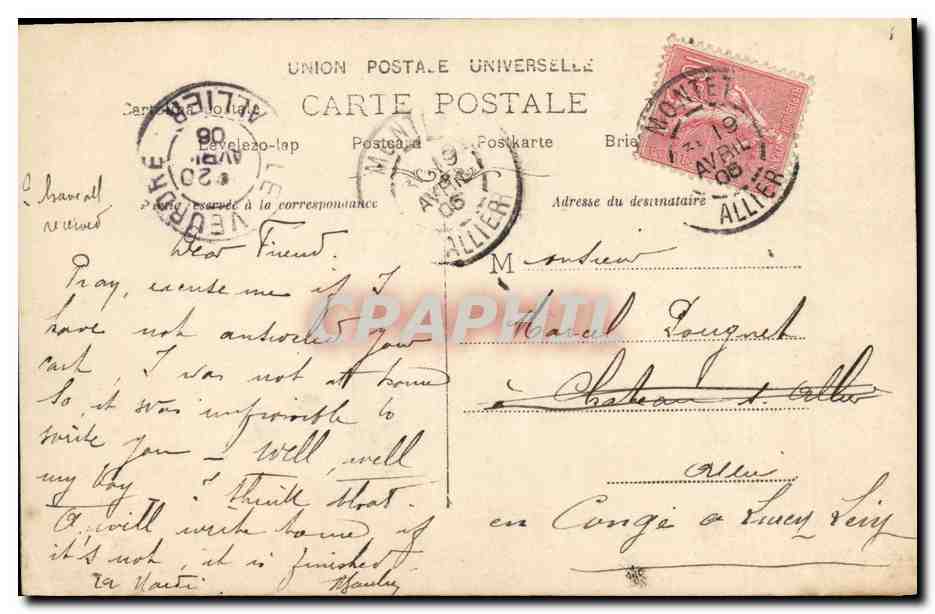 UNION POSTALE UNIVERSELLE
CARTE POSTALE
Levelezo-lap Postcard Postkarte
réservée à la correspondance
Adresse du destinataire
MONTET
19
AVRIL
06
ALLIER
19
AVRIL
06
ALLIER
VEURDRE
20
AVRIL
06
ALLIER
I have all
received
Dear Friend.
Pray, excuse me if I
have not answered your
card, I was not at home
So, it was impossible to
write you – Well, well
my boy I that.
I will write home if
it's not, it is finished.
M onsieur
Marcel Pougnet
à Chateau s. Allier
Allier
en Congé à Lurcy Levy
CRAPHIL